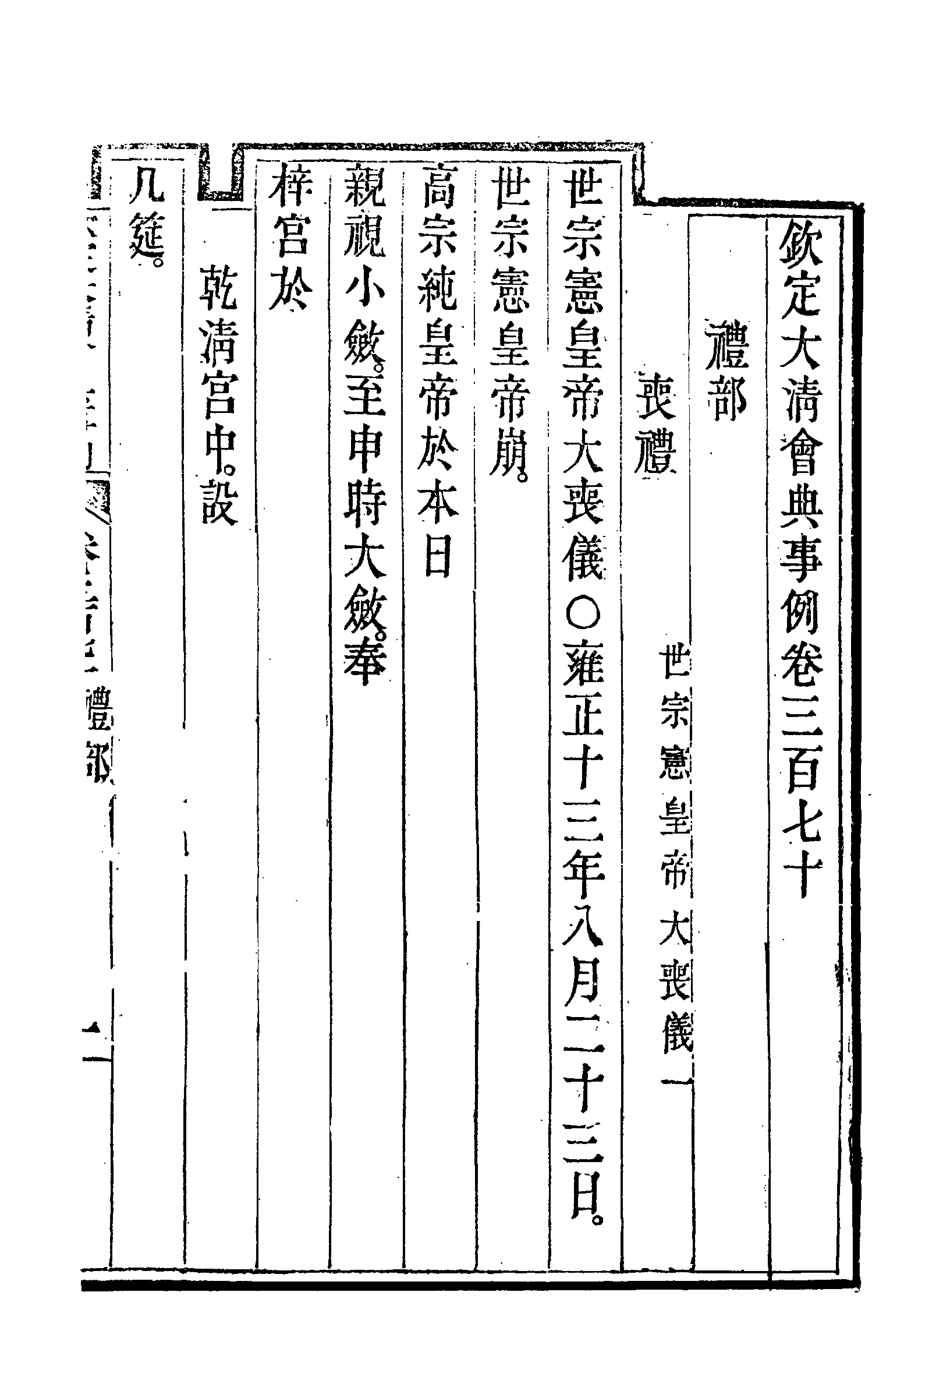 欽定大清會典事例卷三百七十
禮部
喪禮
世宗憲皇帝大喪儀一
世宗憲皇帝大喪儀○雍正十三年八月二十三日。
世宗憲皇帝崩。
高宗純皇帝於本日
親視小斂。至申時大斂。奉
梓宮於
乾清宮中。設
几筵。
禮部